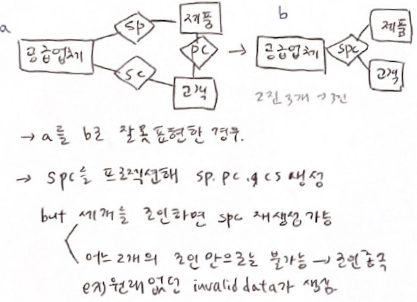 a
b
공급업체
sp
제품
pc
sc
고객
→
공급업체
spc
제품
고객
2진 3개 → 3진
→ a를 b로 잘못 표현한 경우.
→ spc를 프로젝션해 sp. pc. cs 생성
but 세개를 조인하면 spc 재생성 가능
어느 2개의 조인 만으로는 불가능 → 조인종속
ex) 원래 없던 invalid data가 생김